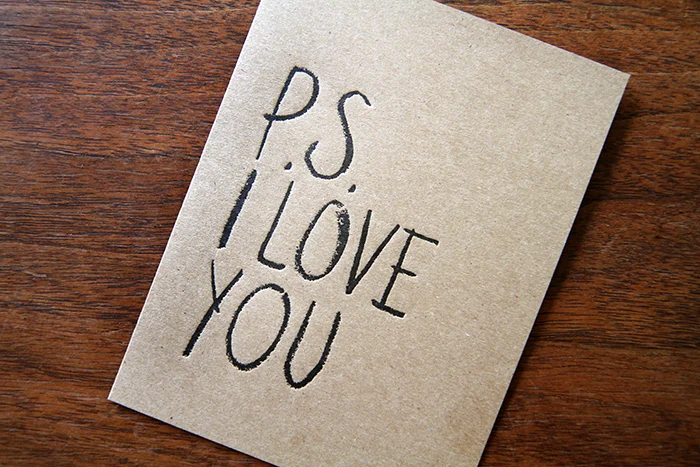 P.S.
I LOVE
YOU